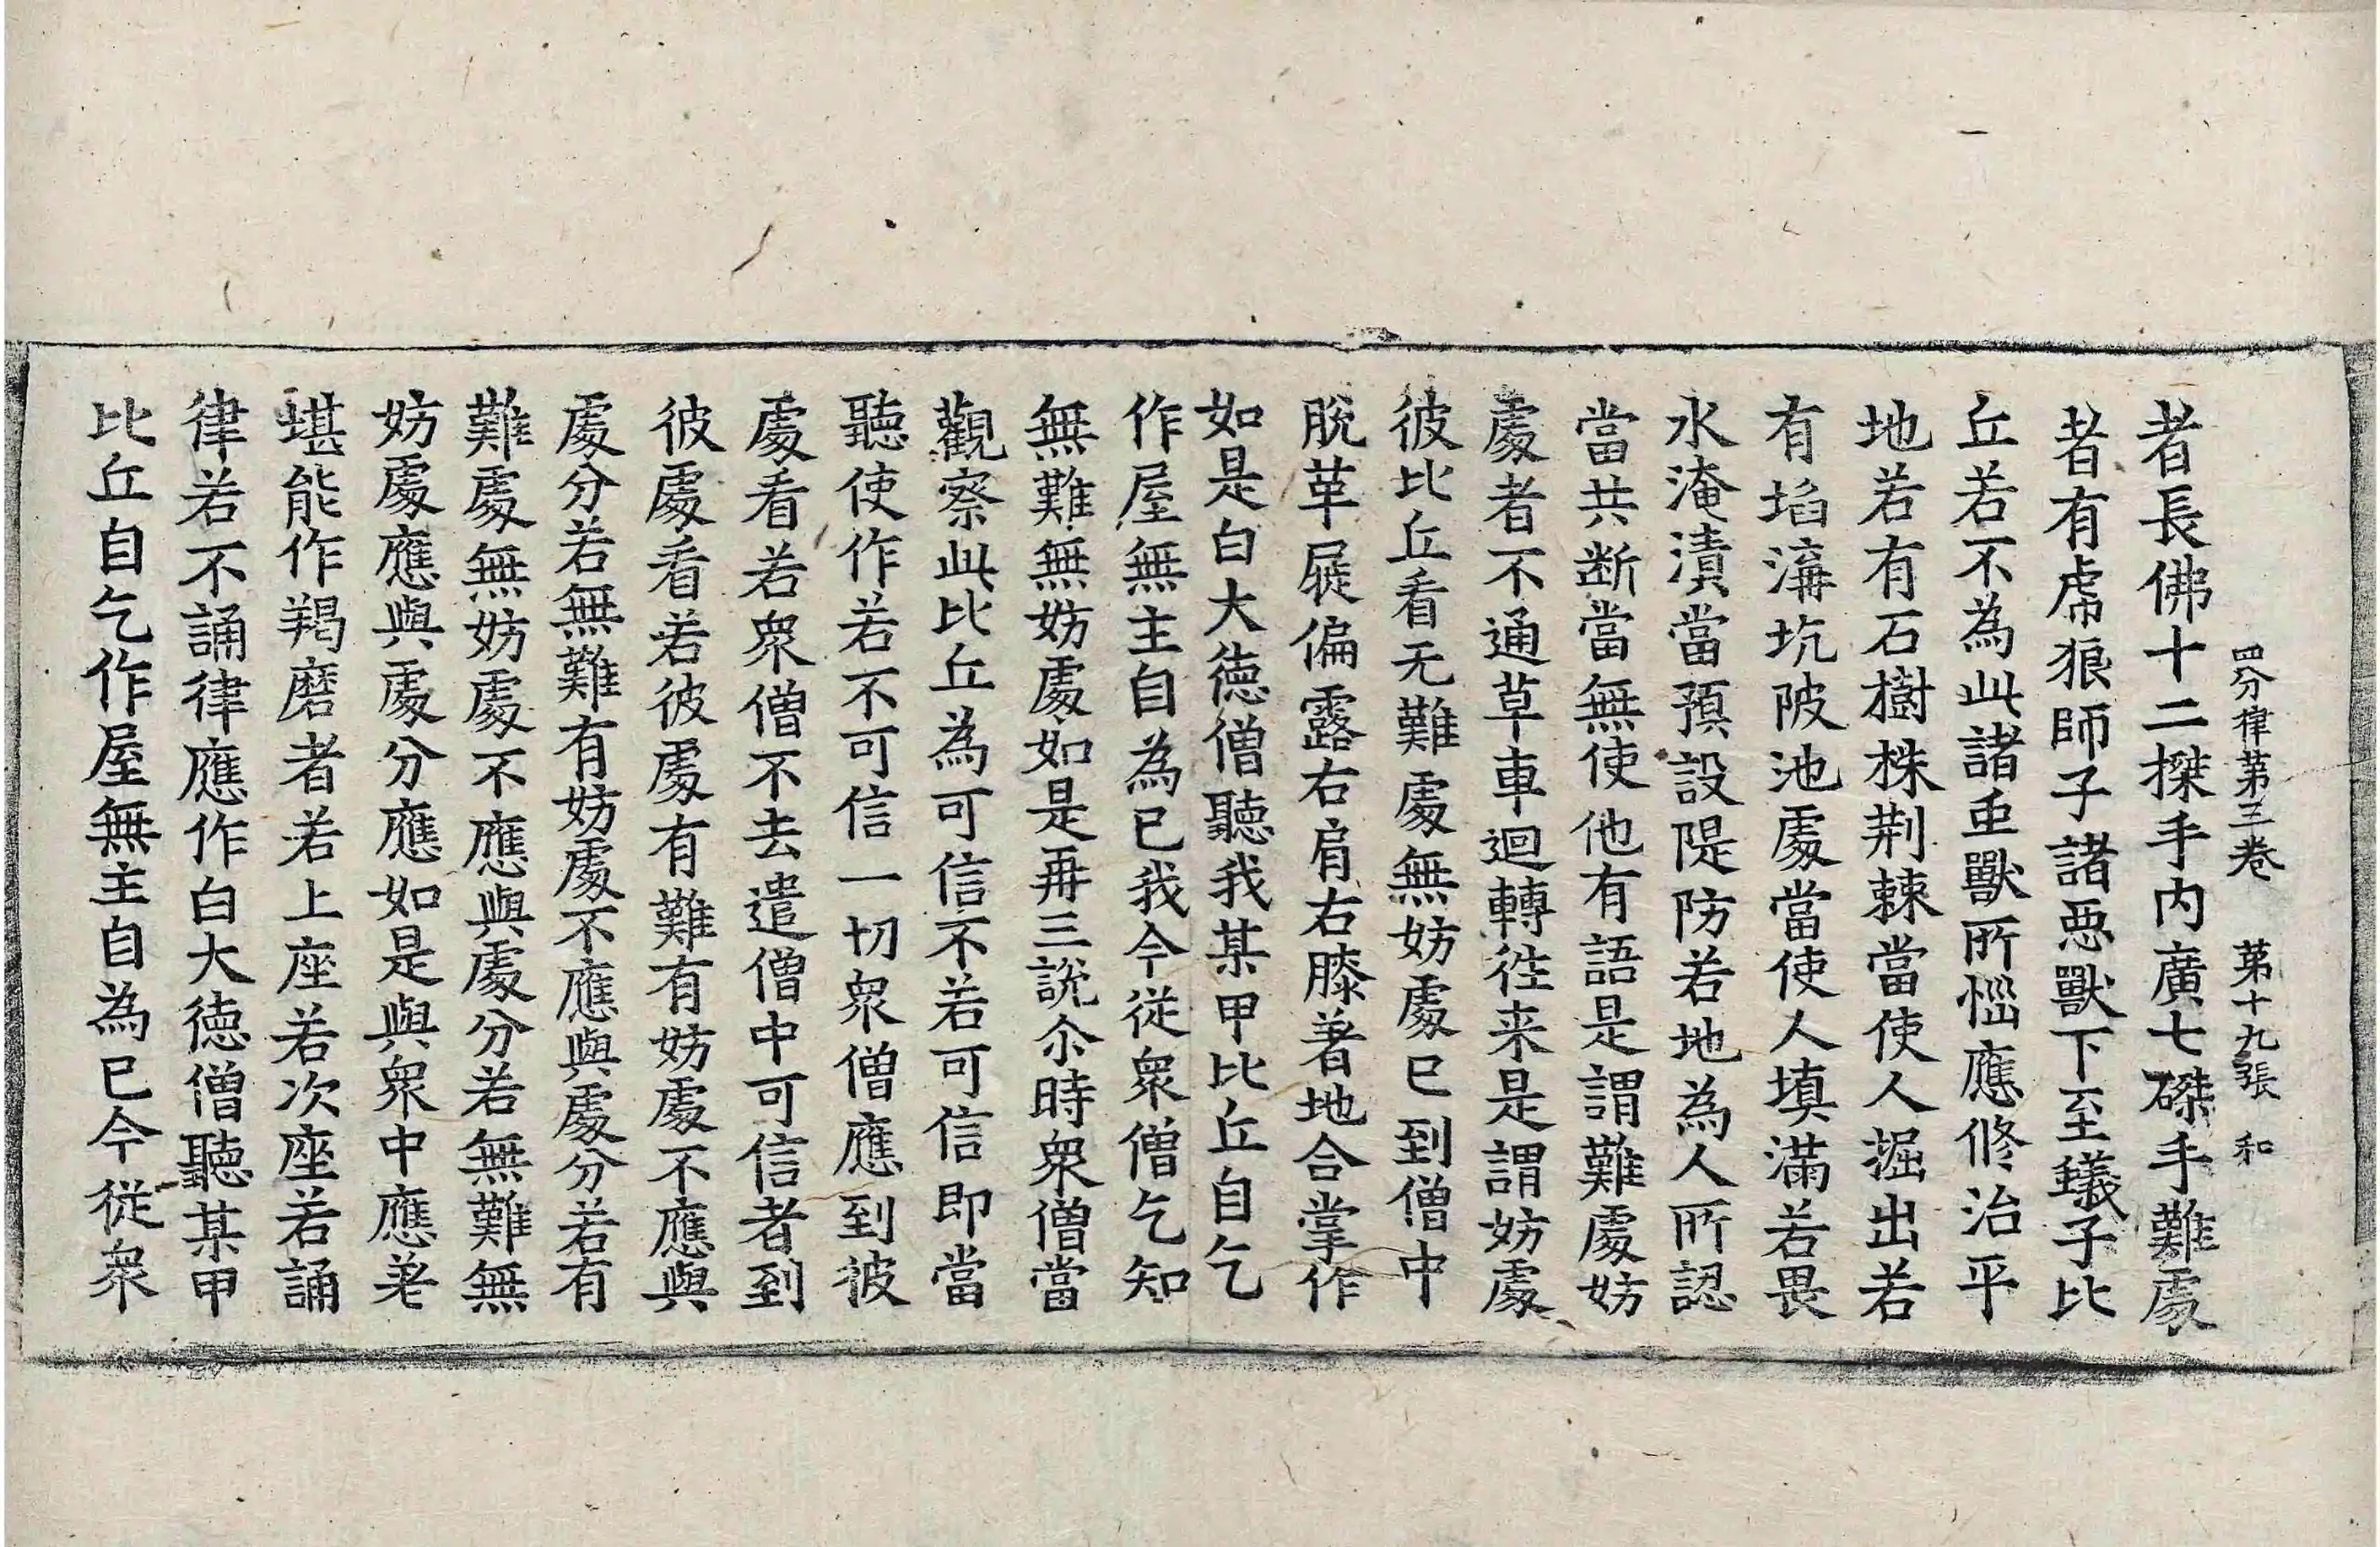 四分律第三卷　第十九張　和
者長佛十二搩手内廣七磔手難處
者有虎狼師子諸惡獸下至蟻子比
丘若不為此諸虫獸所惱應修治平
地若有石樹株荆棘當使人掘出若
有埳溝坑陂池處當使人填滿若畏
水淹漬當預設隄防若地為人所認
當共斷當無使他有語是謂難處妨
處者不通草車迴轉往来是謂妨處
彼比丘看无難處無妨處已到僧中
脫革屣偏露右肩右膝著地合掌作
如是白大德僧聽我某甲比丘自乞
作屋無主自為已我今從衆僧乞知
無難無妨處如是再三說尒時衆僧當
觀察此比丘為可信不若可信即當
聽使作若不可信一切衆僧應到彼
處看若衆僧不去遣僧中可信者到
彼處看若彼處有難有妨處不應與
處分若無難有妨處不應與處分若有
難處無妨處不應與處分若無難無
妨處應與處分應如是與衆中應差
堪能作羯磨者若上座若次座若誦
律若不誦律應作白大德僧聽某甲
比丘自乞作屋無主自為已今從衆